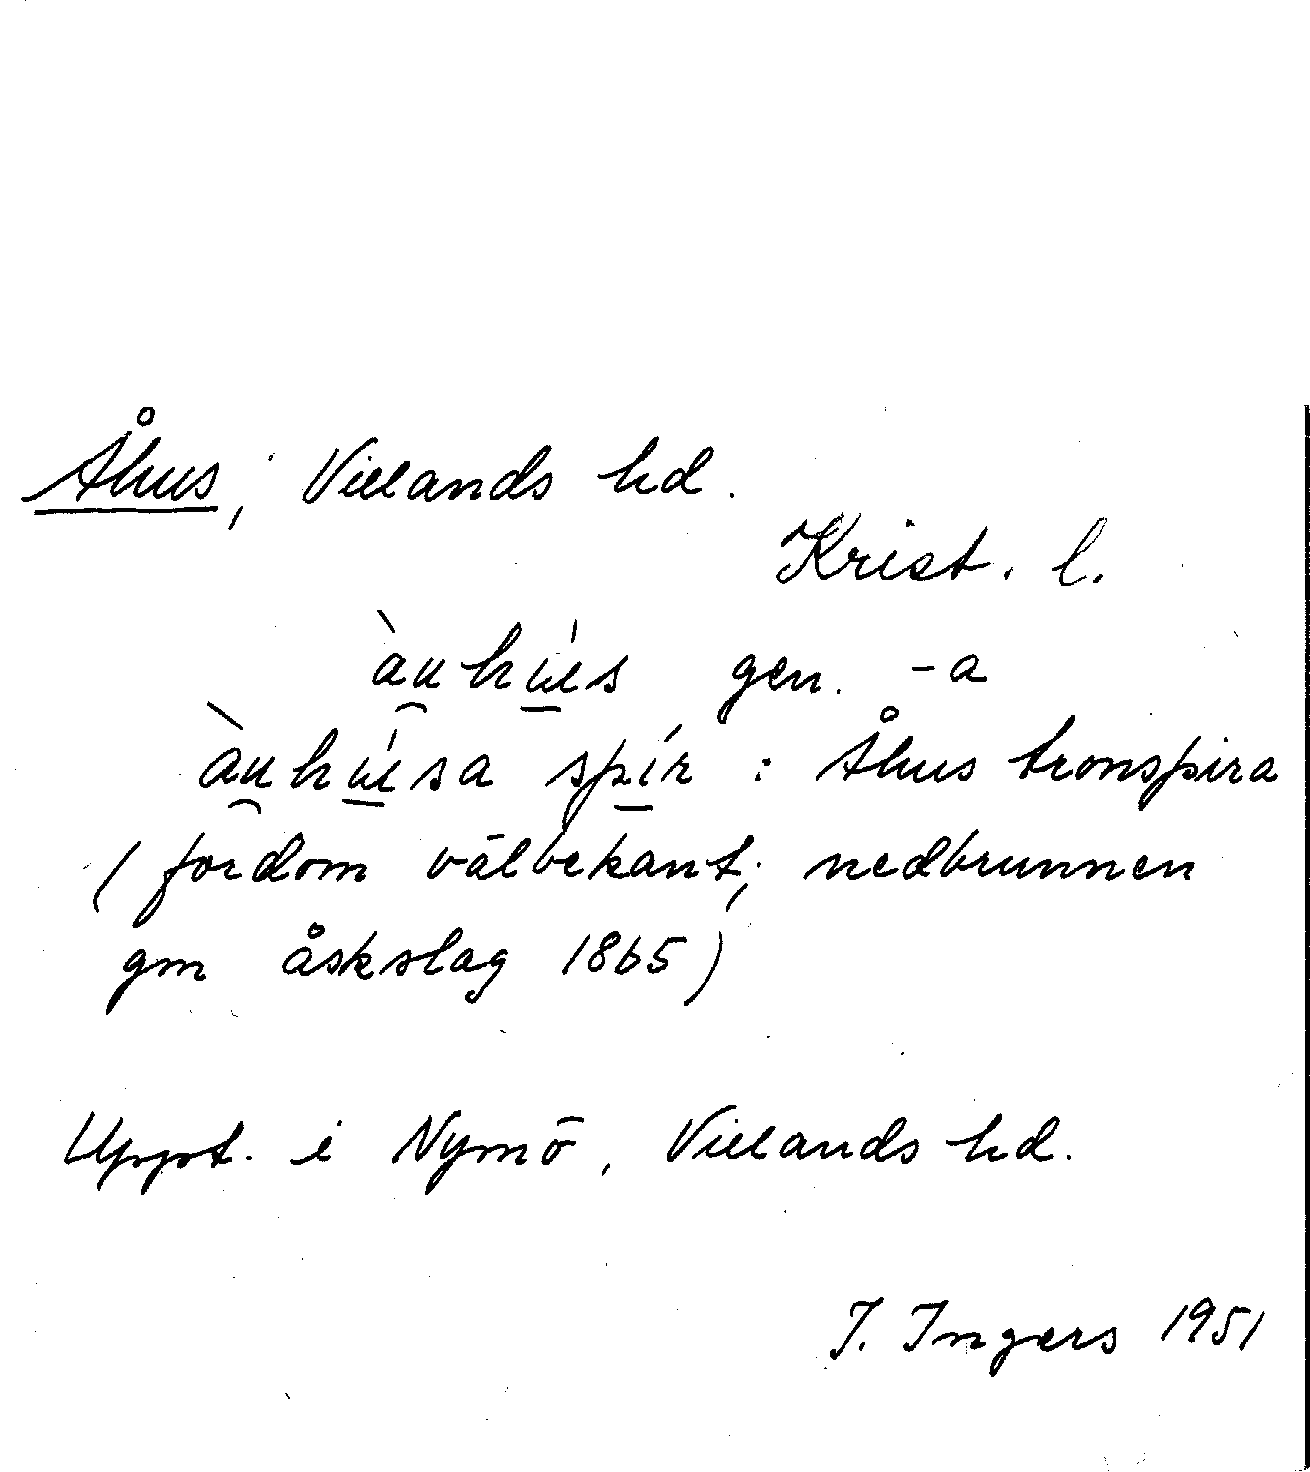 Åhus, Villands hd.
Krist. l.
àu̯hu̱s gen. -a
àu̯hu̱sa spi̱r : Åhus tornspira
(fordom välbekant, nedbrunnen
gm åskslag 1865)
Uppt. i Nymö, Villands hd.
I. Ingers 1951